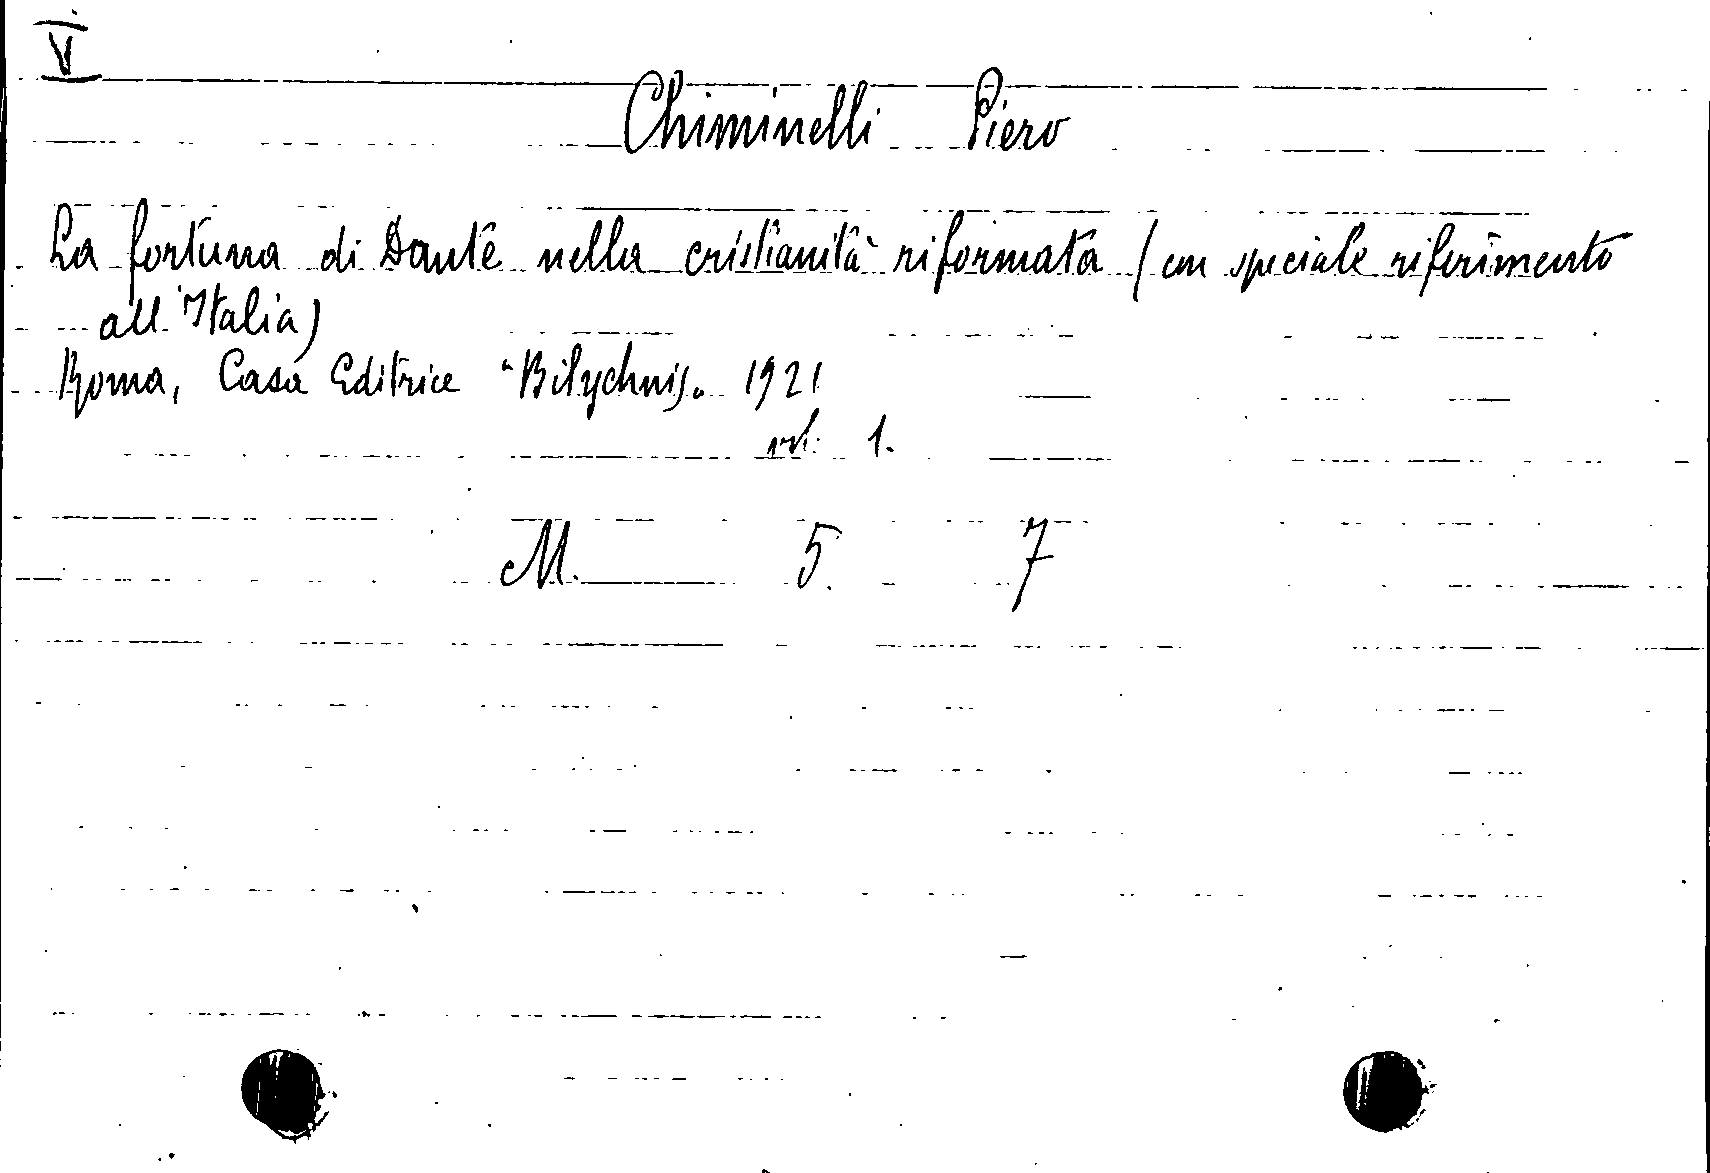 V
Chiminelli Piero
La fortuna di Dante nella cristianità riformata (con speciale riferimento
all'Italia)
Roma, Casa Editrice "Bilychnis" 1921
vol. 1.
M. 5. 7